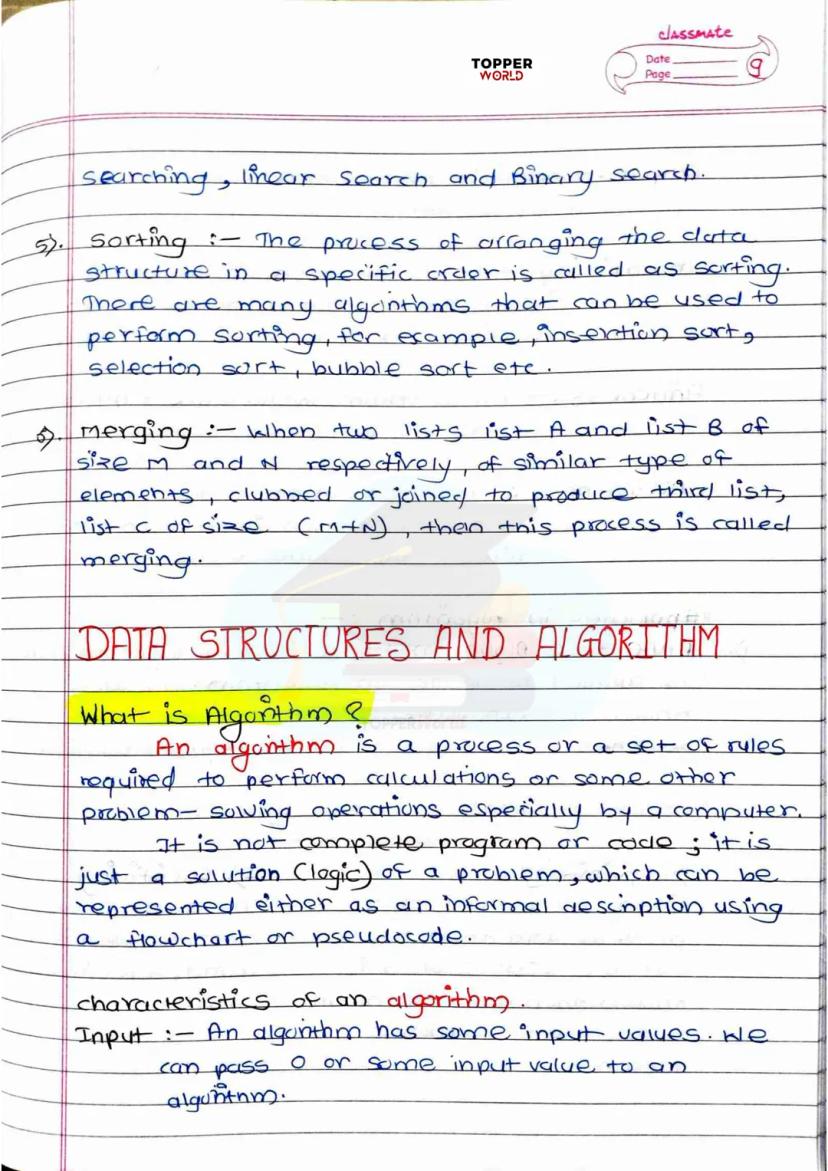 classmate
TOPPER
WORLD
Date
Page
9
searching, linear search and Binary search.
5). Sorting :- The process of arranging the data
structure in a specific order is called as sorting.
There are many algorithms that can be used to
perform sorting, for example, insertion sort,
selection sort, bubble sort etc.
6). Merging :- When two lists list A and list B of
size M and N respectively, of similar type of
elements, clubbed or joined to produce third list,
list C of size (M+N), then this process is called
merging.
DATA STRUCTURES AND ALGORITHM
What is Algorithm?
An algorithm is a process or a set of rules
required to perform calculations or some other
problem-solving operations especially by a computer.
It is not complete program or code; it is
just a solution (logic) of a problem, which can be
represented either as an informal description using
a flowchart or pseudocode.
characteristics of an algorithm.
Input :- An algorithm has some input values. We
can pass 0 or some input value to an
algorithm.